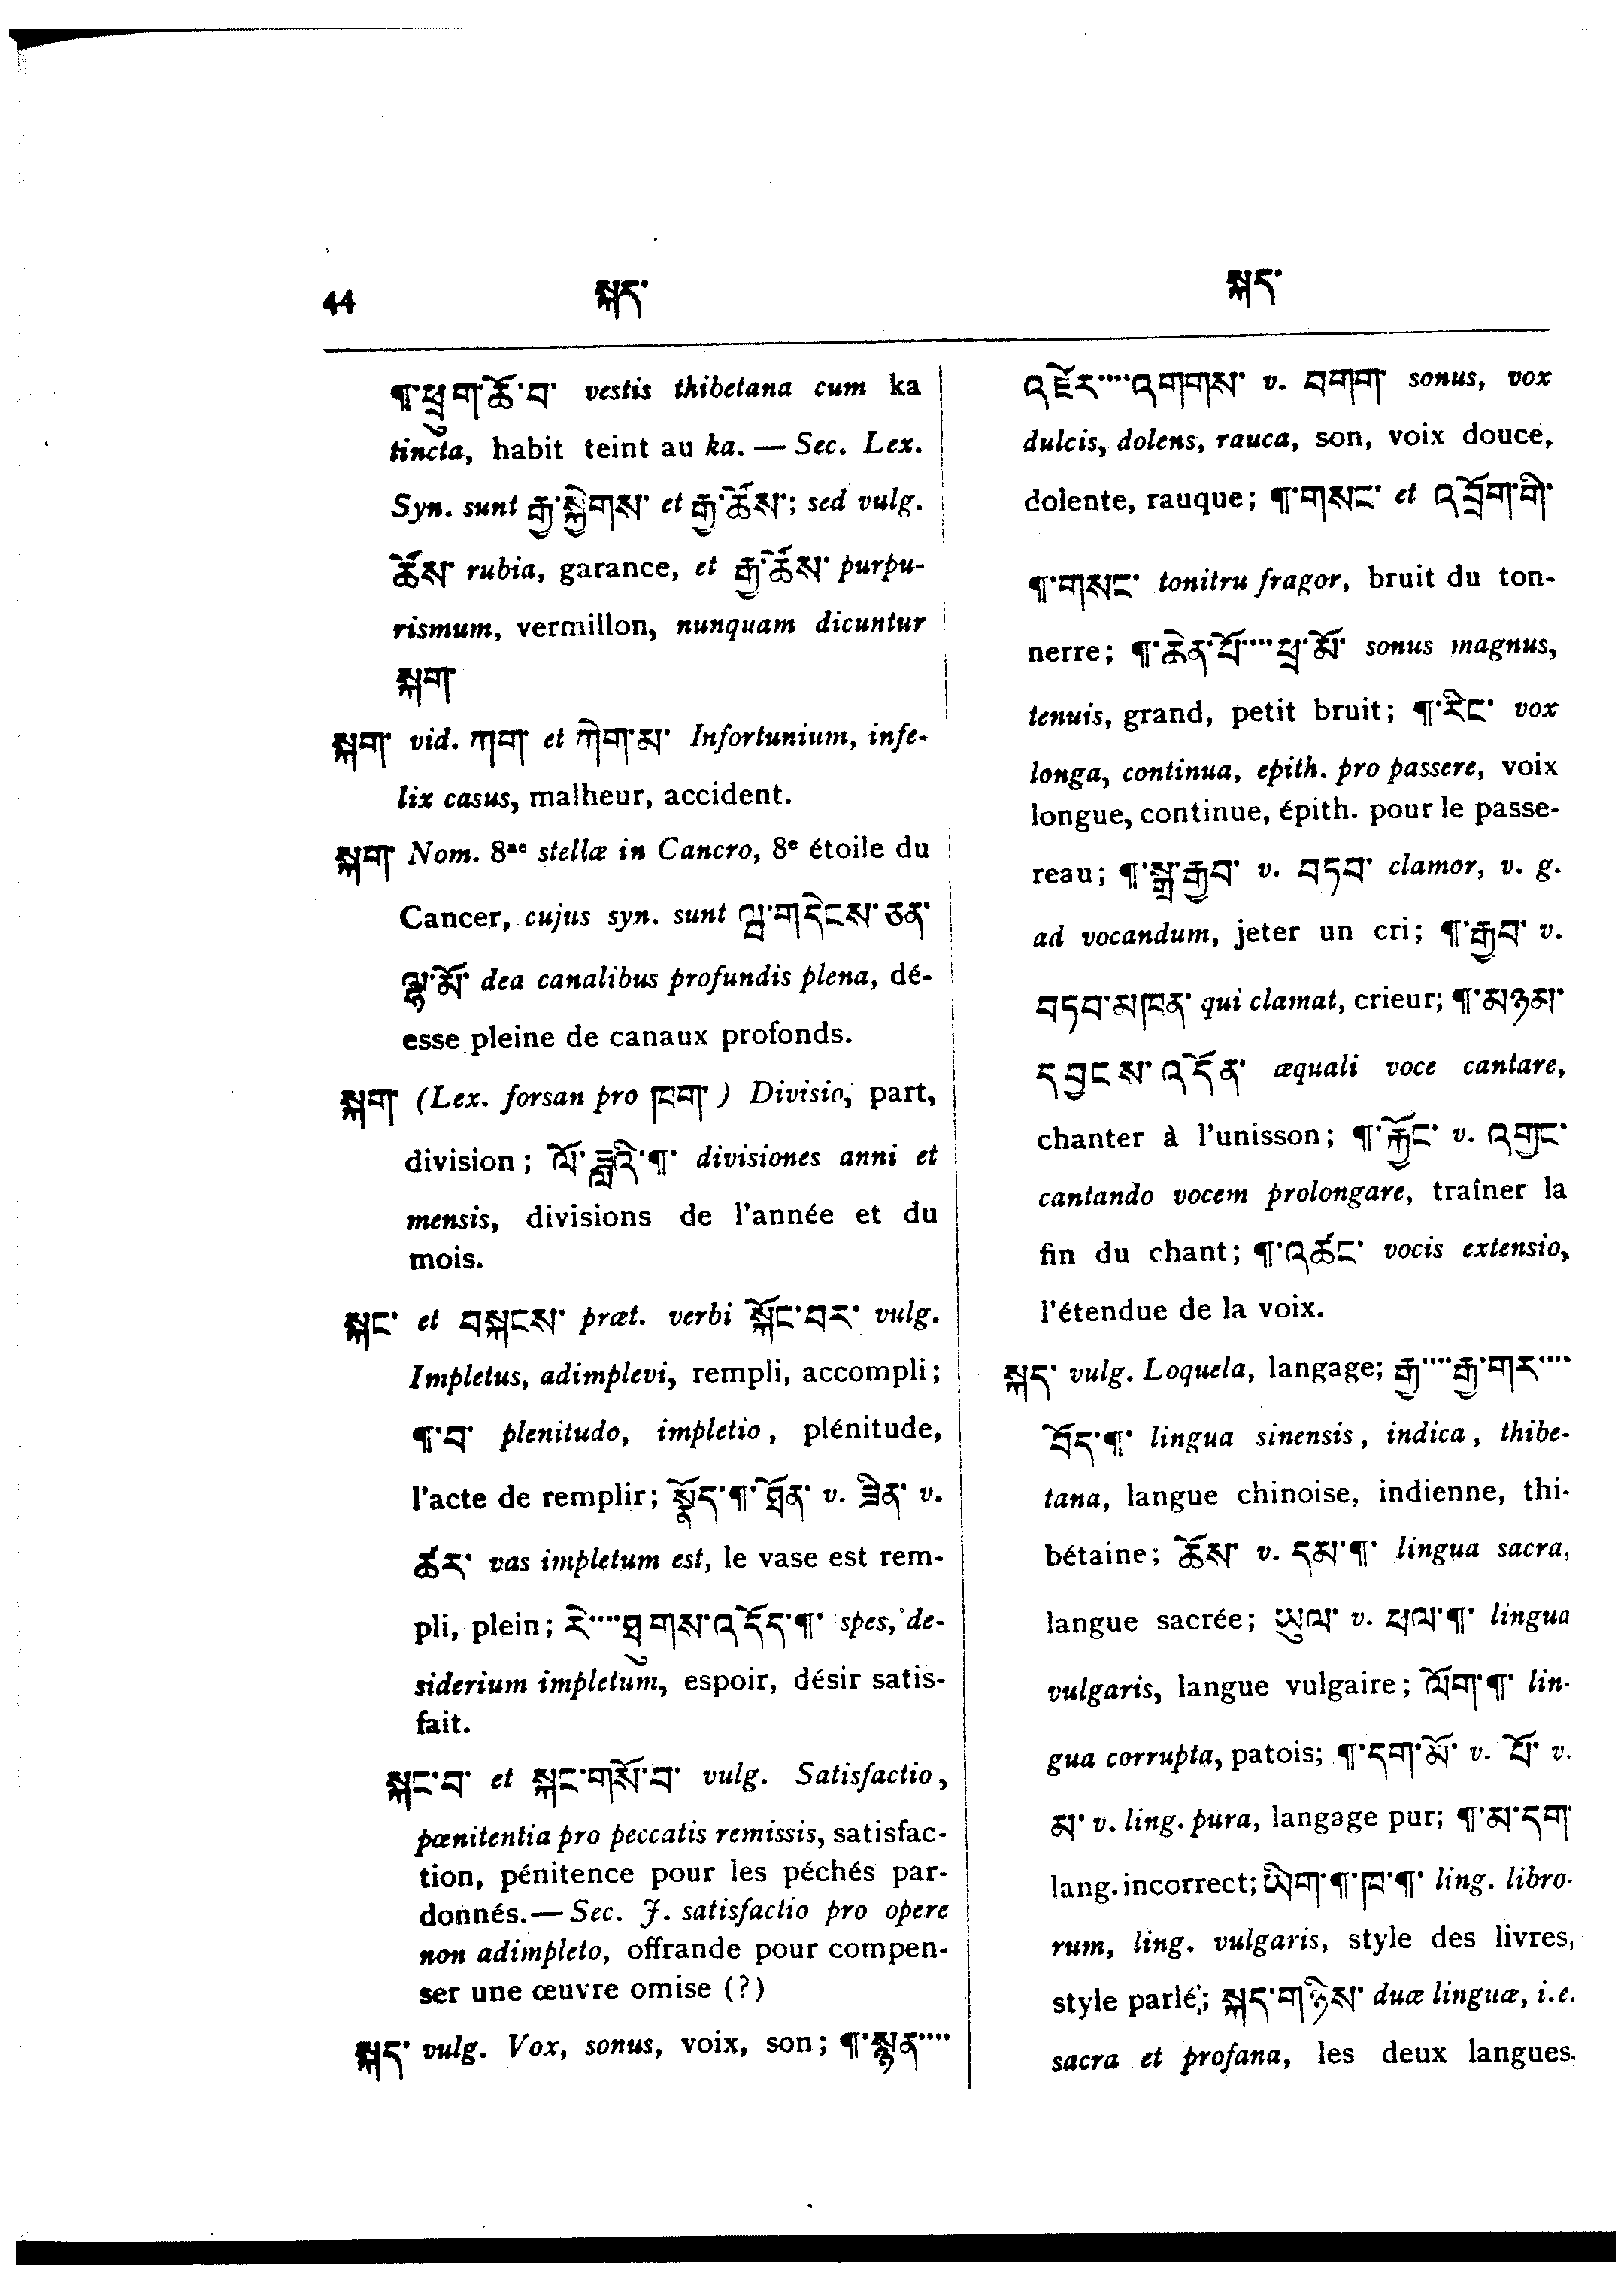 44 སྐད་ སྐད་
¶་ཕྲུག་ཚོ་བ་ vestis thibetana cum ka
tincta, habit teint au ka. — Sec. Lex.
Syn. sunt རྒྱ་སྐྱེགས་ et རྒྱ་ཚོས་; sed vulg.
ཚོས་ rubia, garance, et རྒྱ་ཚོས་ purpu-
rismum, vermillon, nunquam dicuntur
སྐག་
སྐག་ vid. ཀག་ et ཀེག་མ་ Infortunium, infe-
lix casus, malheur, accident.
སྐག་ Nom. 8ae stellæ in Cancro, 8e étoile du
Cancer, cujus syn. sunt ལྦ་གདེངས་ཅན་
ལྷ་མོ་ dea canalibus profundis plena, dé-
esse pleine de canaux profonds.
སྐག་ (Lex. forsan pro ཁག་) Divisio, part,
division; ལོ་ཟླའི་¶་ divisiones anni et
mensis, divisions de l'année et du
mois.
སྐང་ et བསྐངས་ præt. verbi སྐོང་བར་ vulg.
Impletus, adimplevi, rempli, accompli;
¶་བ་ plenitudo, impletio, plénitude,
l'acte de remplir; སྣོད་¶་ཐོན་ v. ཟིན་ v.
ཚར་ vas impletum est, le vase est rem-
pli, plein; རེ་....ཐུགས་འདོད་¶་ spes, de-
siderium impletum, espoir, désir satis-
fait.
སྐང་བ་ et སྐང་གསོ་བ་ vulg. Satisfactio,
pœnitentia pro peccatis remissis, satisfac-
tion, pénitence pour les péchés par-
donnés.— Sec. J. satisfactio pro opere
non adimpleto, offrande pour compen-
ser une œuvre omise (?)
སྐད་ vulg. Vox, sonus, voix, son; ¶་སྙན་....
འཇོར་....འགགས་ v. བགག་ sonus, vox
dulcis, dolens, rauca, son, voix douce,
dolente, rauque; ¶་གསང་ et འབྲོག་གི་
¶་གསང་ tonitru fragor, bruit du ton-
nerre; ¶་ཆེན་པོ་....ཕྲ་མོ་ sonus magnus,
tenuis, grand, petit bruit; ¶་རིང་ vox
longa, continua, epith. pro passere, voix
longue, continue, épith. pour le passe-
reau; ¶་སྒྲ་རྒྱབ་ v. བཏབ་ clamor, v. g.
ad vocandum, jeter un cri; ¶་རྒྱབ་ v.
བཏབ་མཁན་ qui clamat, crieur; ¶་མཉམ་
དབྱངས་འདོན་ æquali voce cantare,
chanter à l'unisson; ¶་རྐྱོང་ v. འགྱང་
cantando vocem prolongare, traîner la
fin du chant; ¶་འཚང་ vocis extensio,
l'étendue de la voix.
སྐད་ vulg. Loquela, langage; རྒྱ་....རྒྱ་གར་....
བོད་¶་ lingua sinensis, indica, thibe-
tana, langue chinoise, indienne, thi-
bétaine; ཆོས་ v. དམ་¶་ lingua sacra,
langue sacrée; ཡུལ་ v. ཕལ་¶་ lingua
vulgaris, langue vulgaire; ལོག་¶་ lin-
gua corrupta, patois; ¶་དག་མོ་ v. པོ་ v.
མ་ v. ling. pura, langage pur; ¶་མ་དག་
lang. incorrect; ཡིག་¶་ཁ་¶་ ling. libro-
rum, ling. vulgaris, style des livres,
style parlé; སྐད་གཉིས་ duæ linguæ, i.e.
sacra et profana, les deux langues,